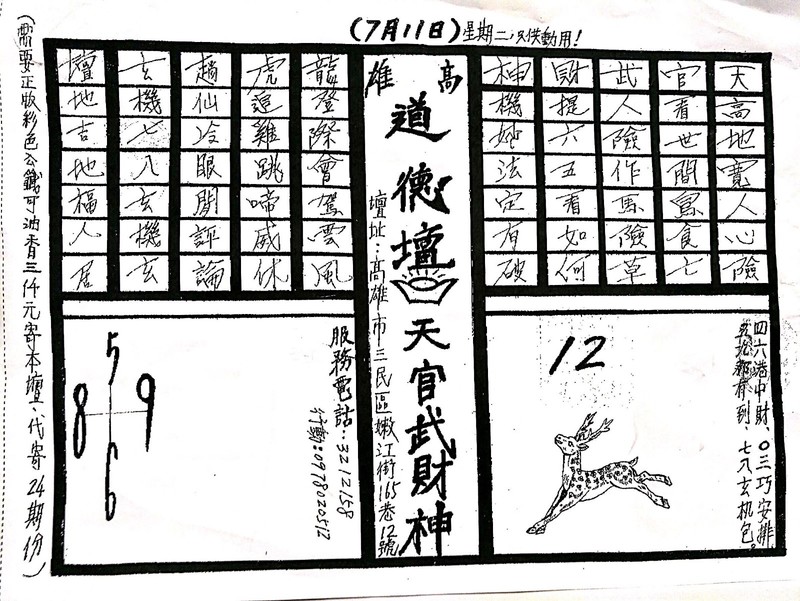 (7月11日)星期二只供動用!
天高地寬人心險
官看世間寫食七
武人險作馬險草
財提六五看如何
神機妙法定有破
高雄
道德壇
天官武財神
壇址:高雄市三民區嫩江街165巷12號
龍登際會駕雲風
虎逗雞跳啼威休
趙仙冷眼閒評論
玄機七八玄機玄
壇地吉地福人居
四六港中財 〇三巧安排
五九都有到.七八玄机包。
12
服務電話:3212158
行動:0978020512
5
8 9
6
(需要正版彩色公鐵可油香三仟元寄本壇、代寄24期份)